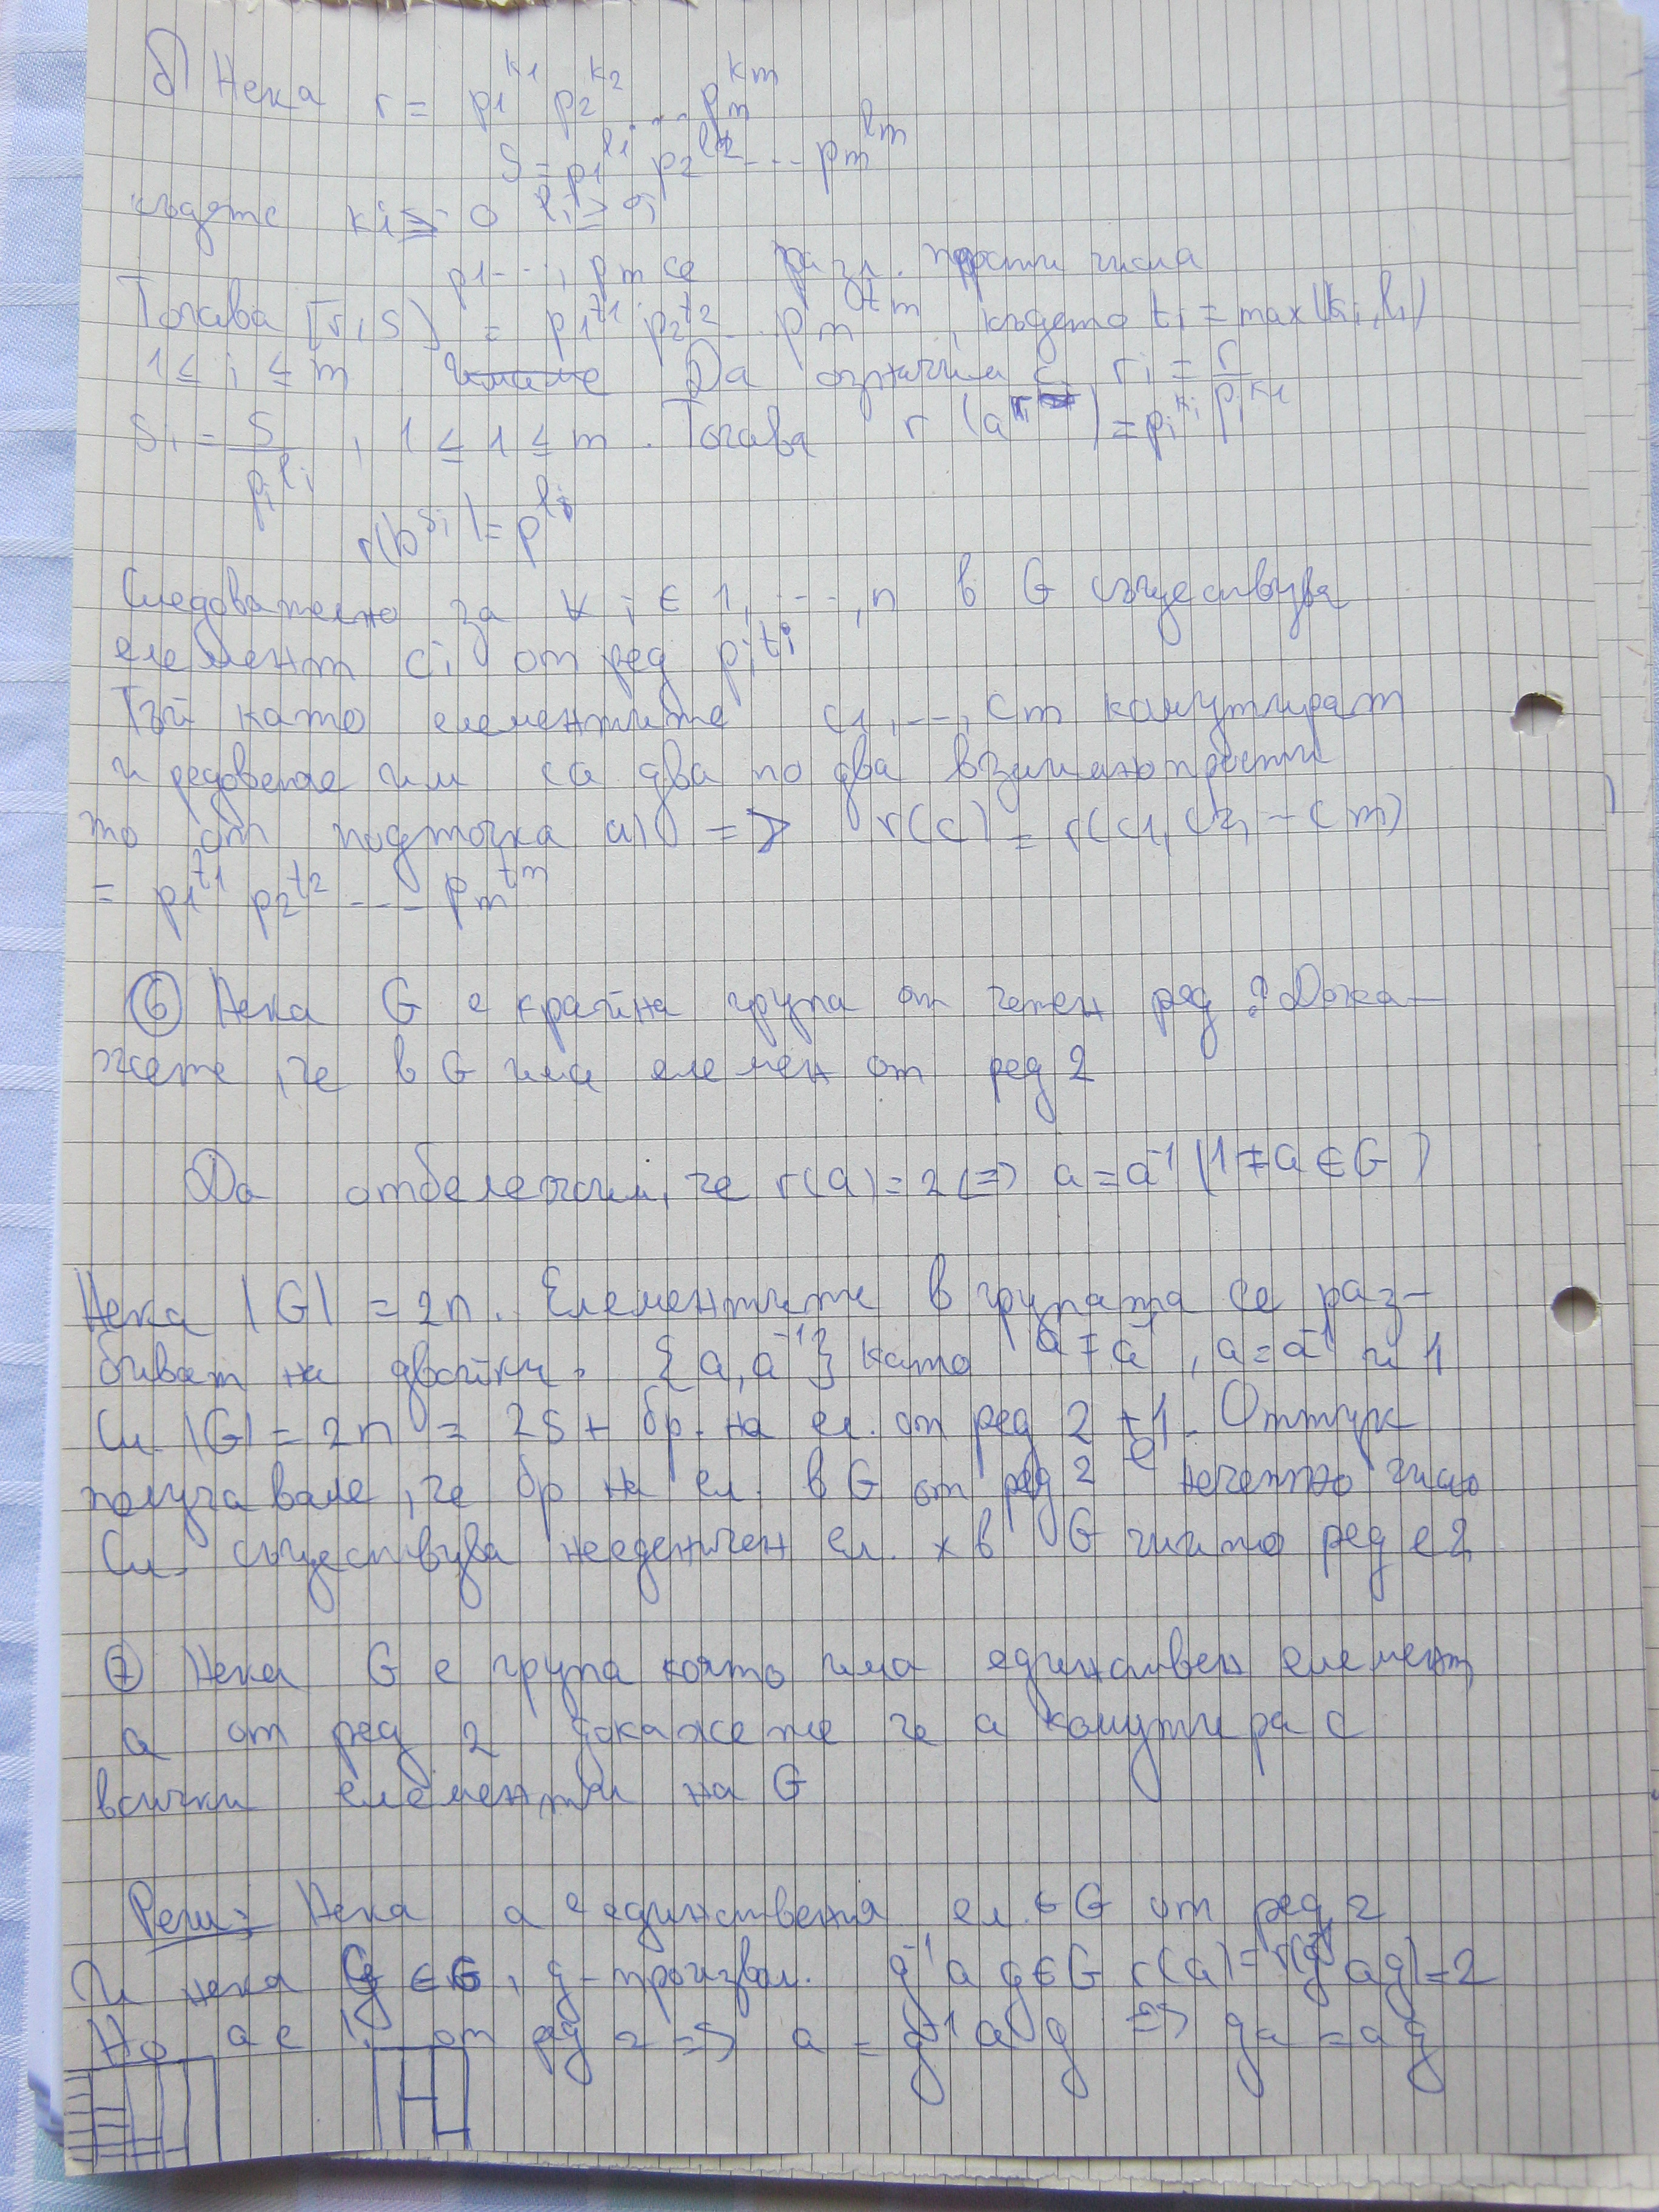 б) Нека r = p1^k1 p2^k2 ... pm^km
S = p1^l1 p2^l2 ... pm^lm
където ki ≥ 0 li ≥ 0,
p1 ..., pm са разл. прости числа
Тогава [r, s] = p1^t1 p2^t2 .. pm^tm, където ti = max(ki, li)
1 ≤ i ≤ m Да означим с ri = r/pi^ki
Si = S/pi^li, 1 ≤ 1 ≤ m. Тогава r(a^ri) = pi^ki
r(b^si) = p^li
Следователно за ∀ i ∈ 1, ..., n в G съществува
елемент ci от ред pi^ti
Тъй като елементите c1, ..., cm комутират
и редовете им са два по два взаимнопрости
то от подточка а) => r(c) = r(c1, c2, - cm)
= p1^t1 p2^t2 --- pm^tm
⑥ Нека G е крайна група от четен ред? Дока-
жете, че в G има елемен от ред 2
Да отбележим, че r(a) = 2 <=> a = a^-1 (1 ≠ a ∈ G)
Нека |G| = 2n. Елементите в групата се раз-
биват на двойки. {a, a^-1} като a ≠ a^-1, a = a^-1 и 1
Сл. |G| = 2n = 2s + бр. на ел. от ред 2 + 1. Оттук
получаваме, че бр на ел. в G от ред 2 е нечетно число
Сл. съществува неединичен ел. x в G чийто ред е 2
⑦ Нека G е група която има единствен елемент
a от ред 2 докажете че a комутира с
всички елементи на G
Реш: Нека a е единствения ел. ∈ G от ред 2
И нека g ∈ G, g - произвол. g^-1 a g ∈ G r(a) = r(g^-1 a g) = 2
Но a е ! от ред 2 => a = g^-1 a g => ga = ag